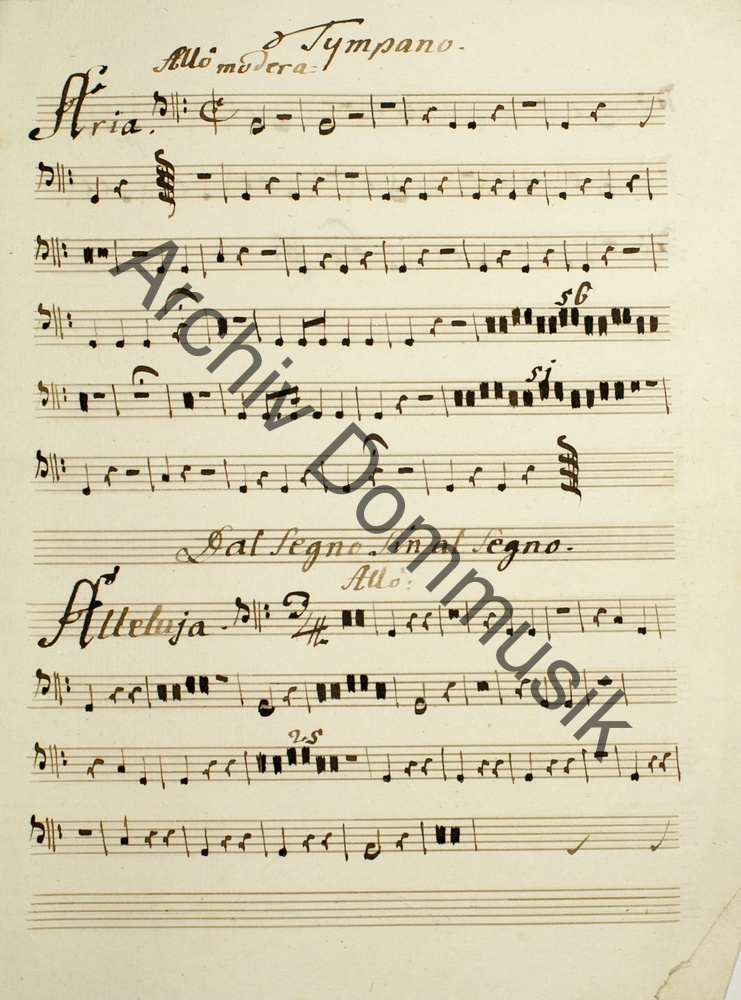 Tympano.
Allo modera:
Aria.
56
51
Dal Segno Sin al Segno.
Allo:
Alleluja. 3/4
25
Archiv Dommusik